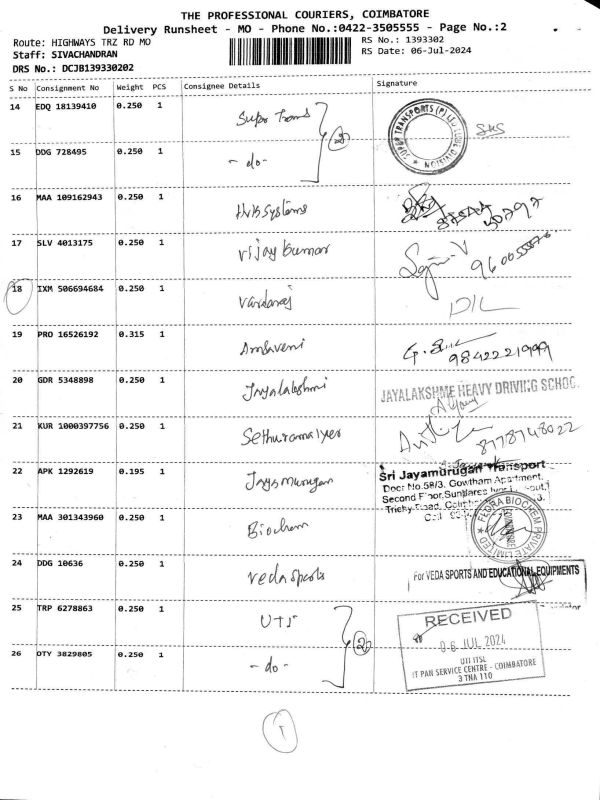 THE PROFESSIONAL COURIERS, COIMBATORE
Delivery Runsheet - MO - Phone No.:0422-3505555 - Page No.:2
Route: HIGHWAYS TRZ RD MO
RS No.: 1393302
Staff: SIVACHANDRAN
RS Date: 06-Jul-2024
DRS No.: DCJB139330202
S No Consignment No Weight PCS Consignee Details Signature
14 EDQ 18139410 0.250 1 Super Trans
SUPER TRANSPORTS (P) LTD DIVISION
(2)
15 DDG 728495 0.250 1 -do-
16 MAA 109162943 0.250 1 HVK Systems
17 SLV 4013175 0.250 1 Vijay kumar
18 IXM 506694684 0.250 1 Vardaraj D/L
19 PRO 16526192 0.315 1 Amsaveni 9842221999
20 GDR 5348898 0.250 1 Jayalakshmi JAYALAKSHME HEAVY DRIVING SCHOO
21 KUR 1000397756 0.250 1 Sethuramaiyer 8778748022
22 APK 1292619 0.195 1 Jayamurugan Sri Jayamurugan Transport
Door No.58/3, Gowtham Apartment,
Second Floor,
Trichy Road,
23 MAA 301343960 0.250 1 Biochem FEDRA BIOCHEM PRIVATE LIMITED
24 DDG 10636 0.250 1 Veda sports For VEDA SPORTS AND EDUCATIONAL EQUIPMENTS
25 TRP 6278863 0.250 1 UTI RECEIVED
(2)
06 JUL 2024
26 OTY 3829805 0.250 1 -do- UTI ITSL
IT PAN SERVICE CENTRE - COIMBATORE
3 TNA 110
1